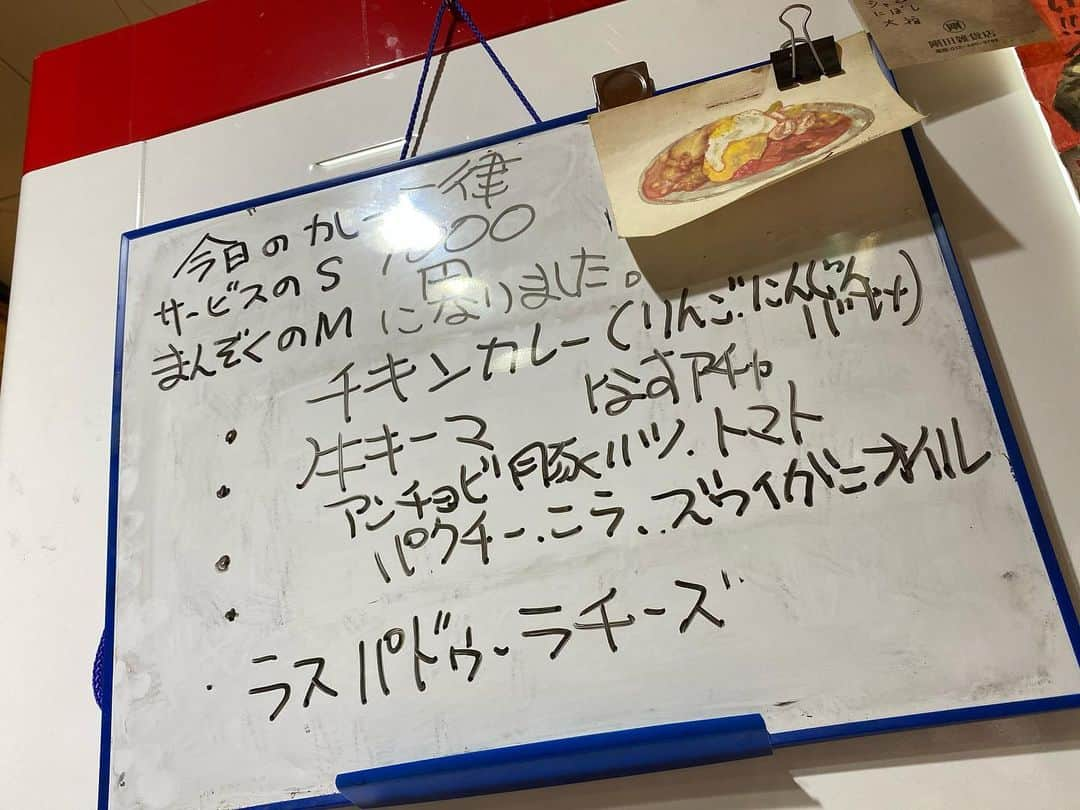 シャン
にぼし
大福
剛
剛田雑貨店
今日のカレー 一律
サービスのS 1000
まんぞくのM になりました。
・チキンカレー(りんご.にんじん
バキッ)
・牛キーマ なすアチャ
・アンチョビ豚ハツ.トマト
・パクチー.ニラ.ズワイがニオイル
・ラスパドゥーラチーズ